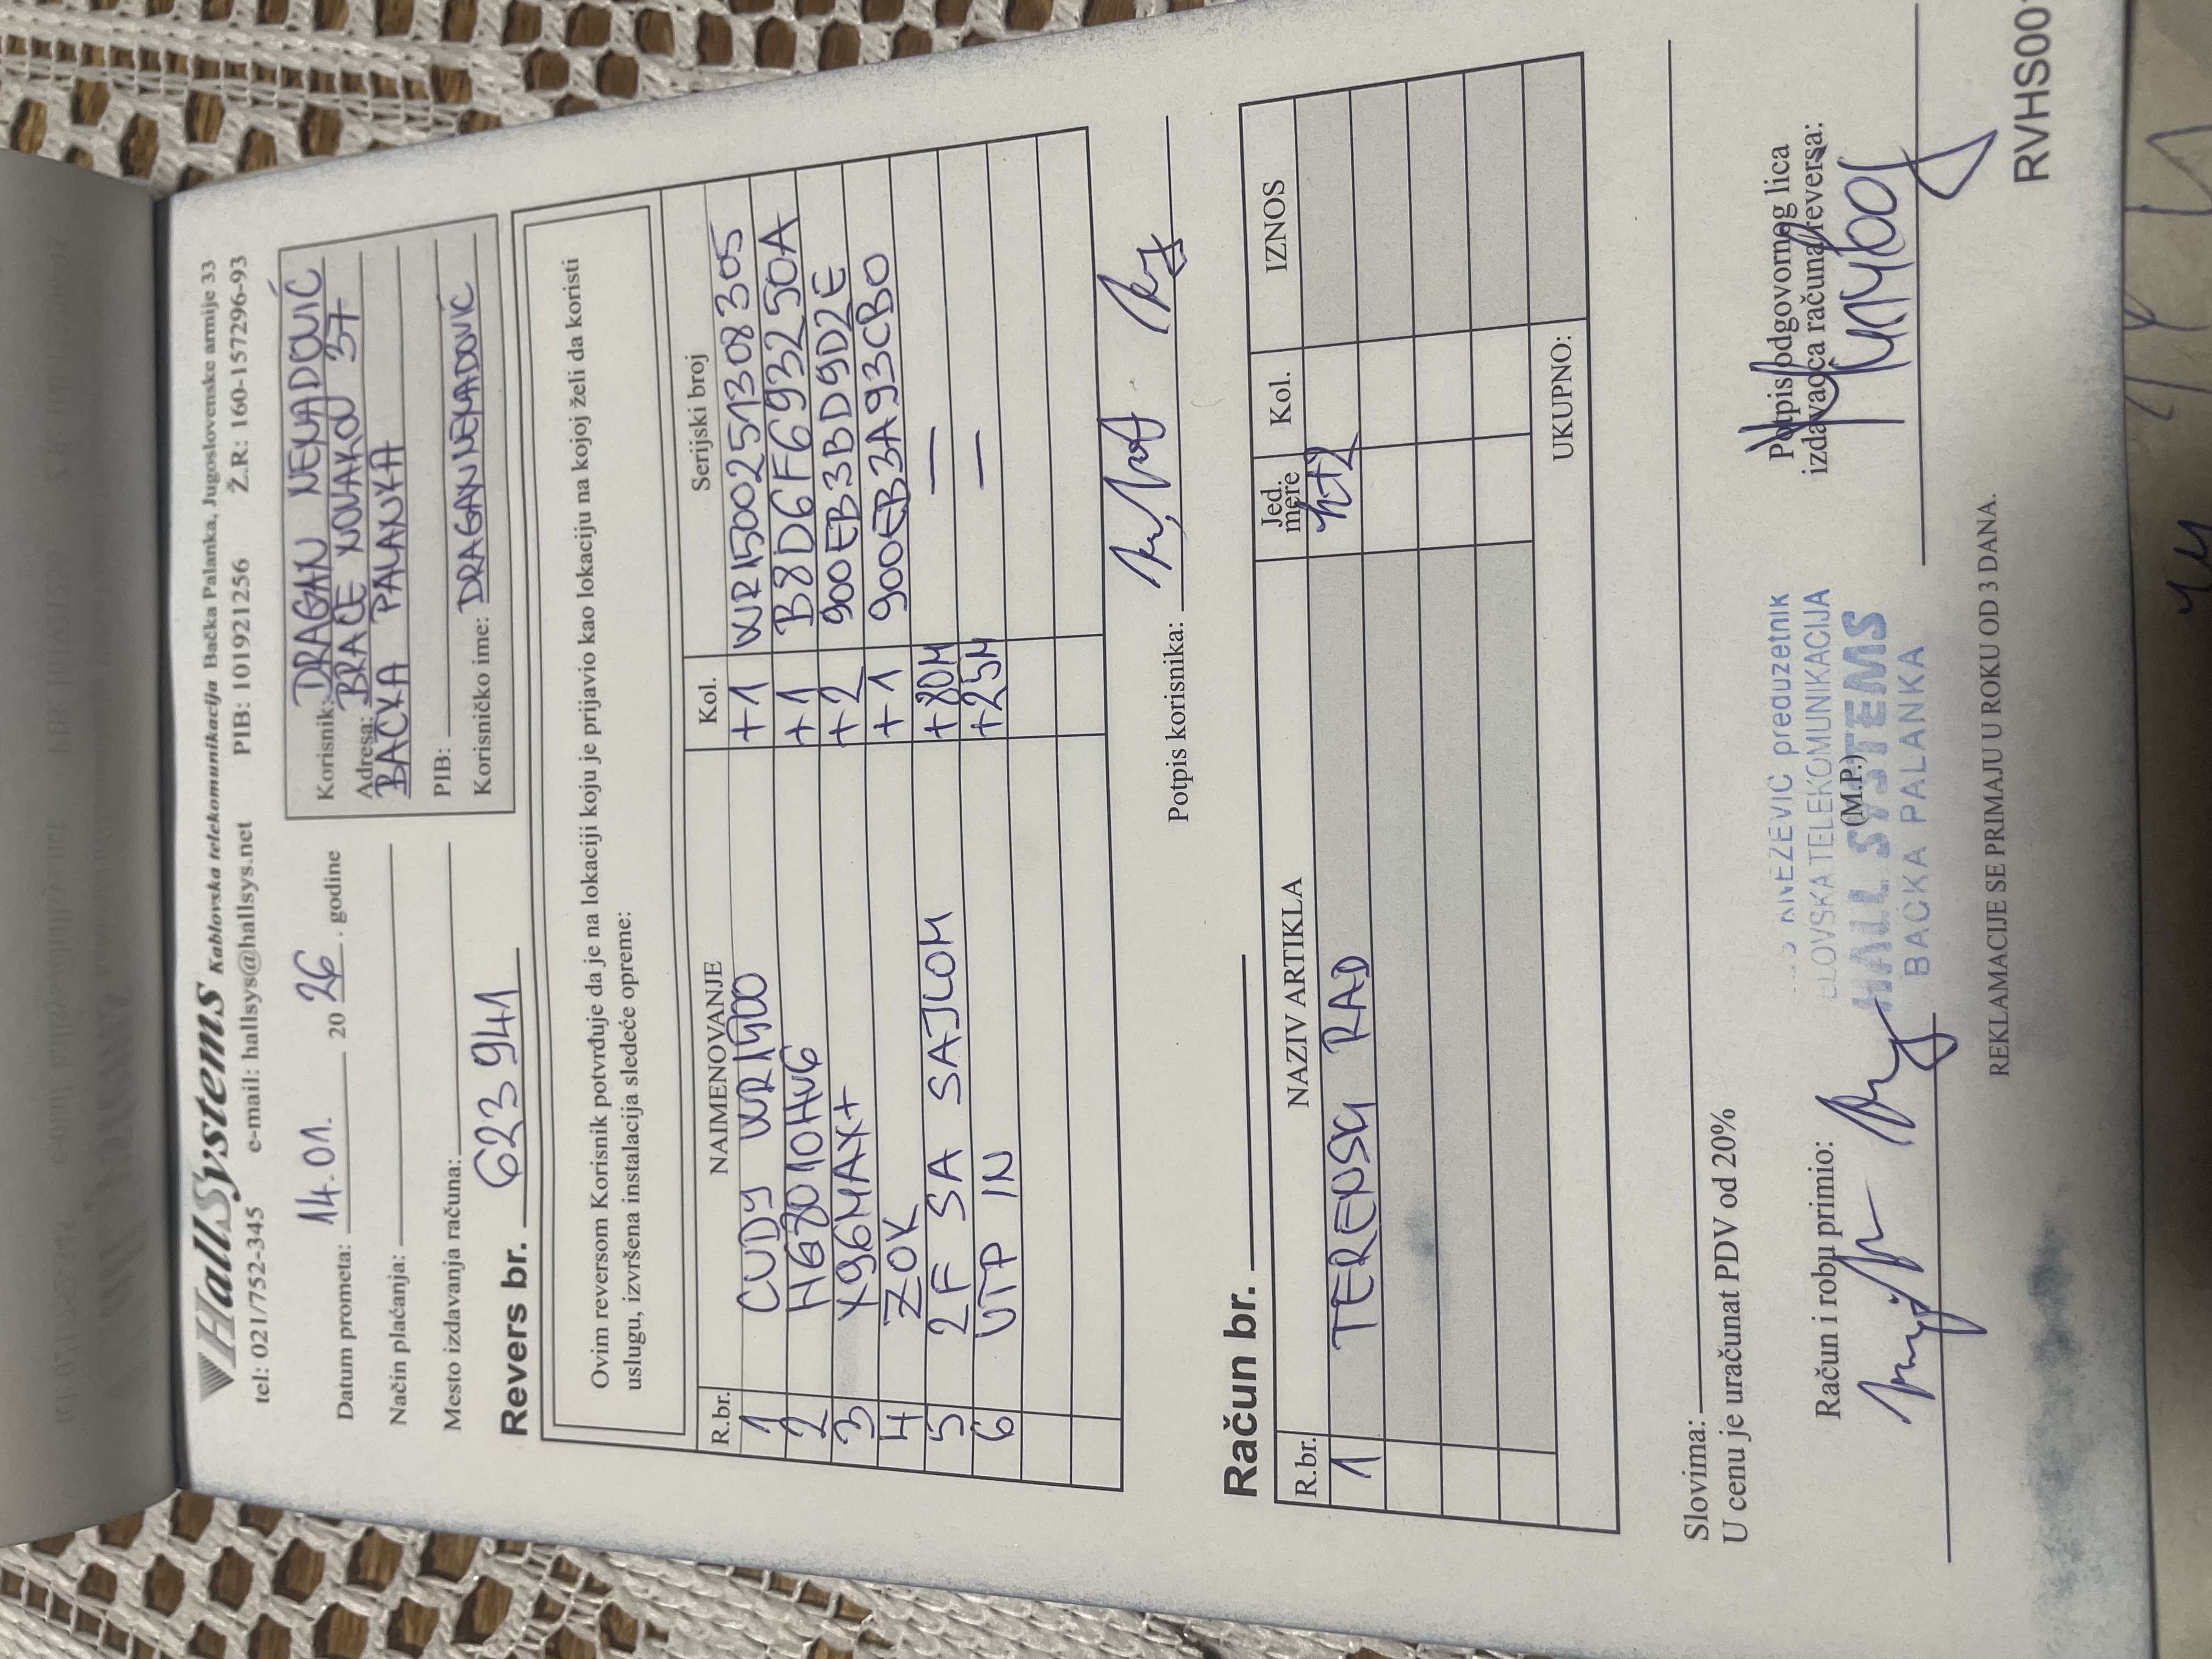 HallSystems Kablovska telekomunikacija Bačka Palanka, Jugoslovenske armije 33
tel: 021/752-345 e-mail: hallsys@hallsys.net PIB: 101921256 Ž.R: 160-157296-93
Datum prometa: 14.01. 20 26. godine
Način plaćanja:
Mesto izdavanja računa:
Revers br. 623941
Korisnik: DRAGAN NENADOVIĆ
Adresa: BRAĆE NOVAKOV 37
BAČKA PALANKA
PIB:
Korisničko ime: DRAGANNENADOVIĆ
Ovim reversom Korisnik potvrđuje da je na lokaciji koju je prijavio kao lokaciju na kojoj želi da koristi
uslugu, izvršena instalacija sledeće opreme:
R.br. NAIMENOVANJE Kol. Serijski broj
1 CUDY WR1400 +1 WR1500251308305
2 HG8010HV6 +1 B8D6F693250A
3 X96MAX+ +2 900EB3BD9D2E
4 ZOK +1 900EB3A93CB0
5 2F SA SAJLOM +80M —
6 UTP IN +25M —
Potpis korisnika:
Račun br.
R.br. NAZIV ARTIKLA Jed. mere Kol. IZNOS
1 TERENSKI RAD h+2
UKUPNO:
Slovima:
U cenu je uračunat PDV od 20%
Račun i robu primio:
(M.P.)
Potpis odgovornog lica
izdavaoca računa/reversa:
KNEZEVIC preduzetnik
TELEKOMUNIKACIJA
HALL SYSTEMS
BACKA PALANKA
REKLAMACIJE SE PRIMAJU U ROKU OD 3 DANA.
RVHS001